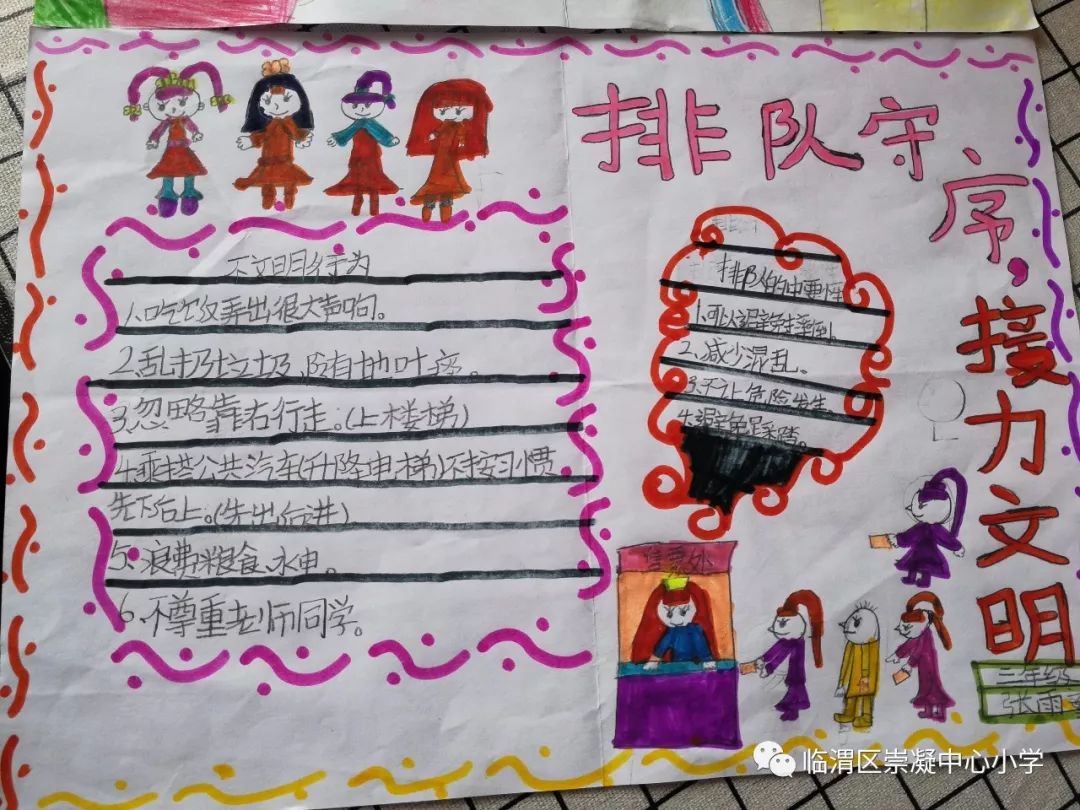 排队守序，接力文明
不文明行为
1.吃饭弄出很大声响。
2.乱扔垃圾,随地吐痰。
3.忽略靠右行走。(上楼梯)
4.乘搭公共汽车(升降电梯)不按习惯
先下后上。(先出后进)
5.浪费粮食、水电。
6.不尊重老师同学。
排队的重要性
2.减少混乱。
3.不让危险发生。
4.避免踩踏。
售票处
三年级
张雨
临渭区崇凝中心小学